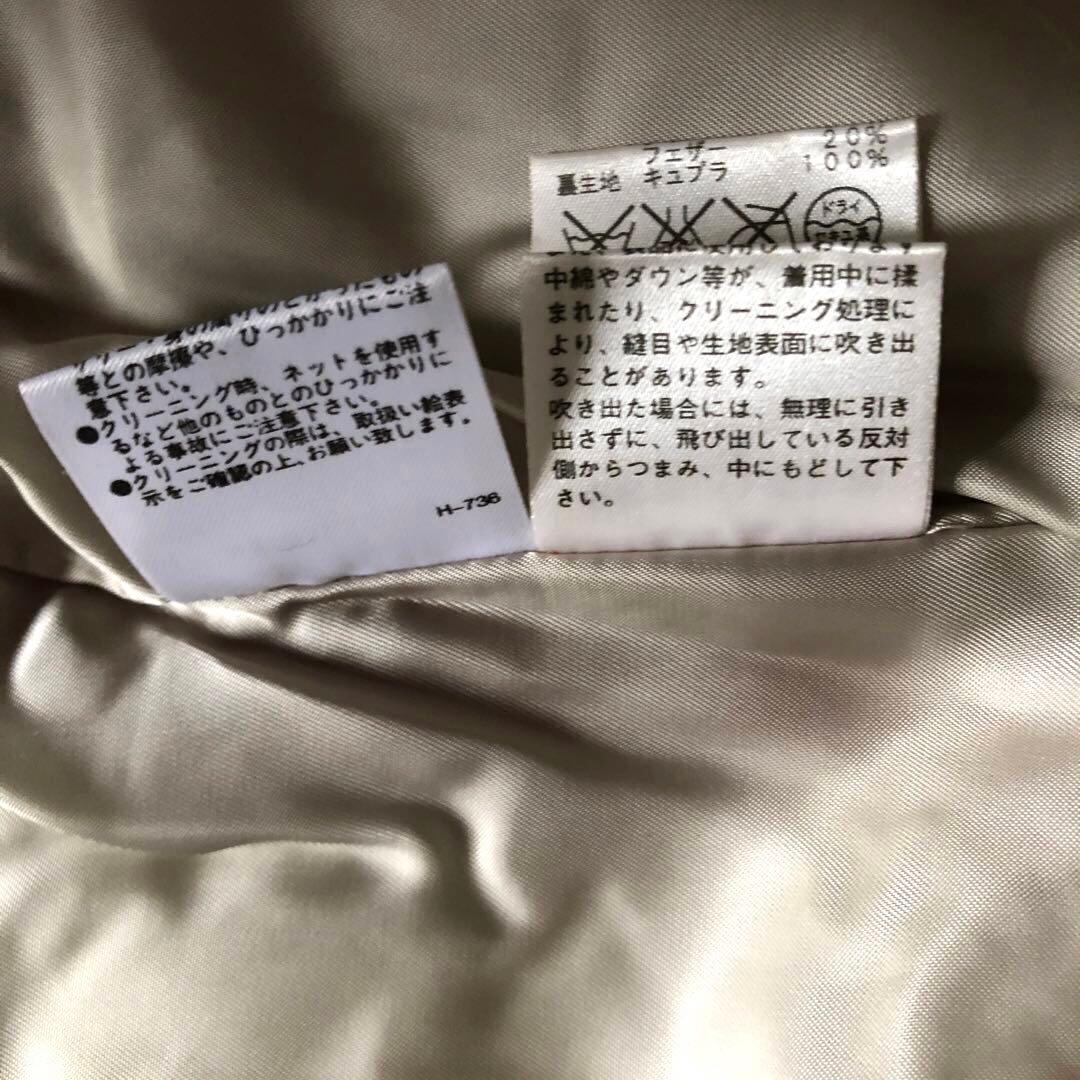 等との摩擦や、ひっかかりにご注
意下さい。
●クリーニング時、ネットを使用す
るなど他のものとのひっかかりに
よる事故にご注意下さい。
●クリーニングの際は、取扱い絵表
示をご確認の上、お願い致します。
H-736
フェザー 20%
裏生地 キュプラ 100%
ドライ
中綿やダウン等が、着用中に揉
まれたり、クリーニング処理に
より、縫目や生地表面に吹き出
ることがあります。
吹き出た場合には、無理に引き
出さずに、飛び出している反対
側からつまみ、中にもどして下
さい。